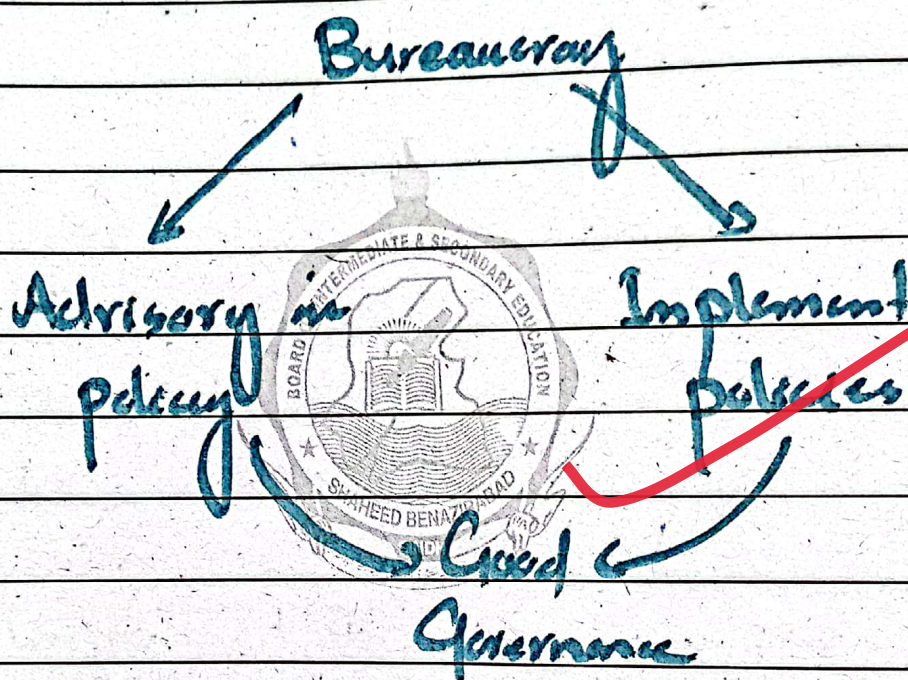 Bureaucracy
Advisory in
policy
Implement
policies
Good
Governance
BOARD OF INTERMEDIATE & SECONDARY EDUCATION
SHAHEED BENAZIRABAD